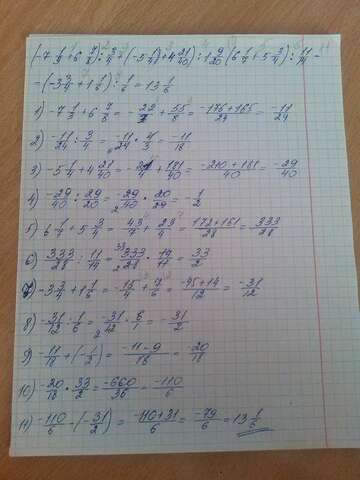 (-7 1/3 + 6 7/8) : 3/4 + (-5 1/4 + 4 21/40) : 1 9/20 (6 1/7 + 5 3/4) : 11/14 -
-(-3 3/4 + 1 1/6) : 1/6 = 13 1/6
1) -7 1/3 + 6 7/8 = -22/3 + 55/8 = (-176+165)/24 = -11/24
2) -11/24 : 3/4 = -11/24 · 4/3 = -11/18
3) -5 1/4 + 4 21/40 = -21/4 + 181/40 = (-210+181)/40 = -29/40
4) -29/40 : 29/20 = -29/40 · 20/29 = -1/2
5) 6 1/7 + 5 3/4 = 43/7 + 23/4 = (172+161)/28 = 333/28
6) 333/28 : 11/14 = 333/28 · 14/11 = 33/2
7) -3 3/4 + 1 1/6 = -15/4 + 7/6 = (-45+14)/12 = -31/12
8) -31/12 : 1/6 = -31/12 · 6/1 = -31/2
9) -11/18 + (-1/2) = (-11-9)/18 = -20/18
10) -20/18 · 33/2 = -660/36 = -110/6
11) -110/6 - (-31/2) = (-110+31)/6 = -79/6 = 13 1/6